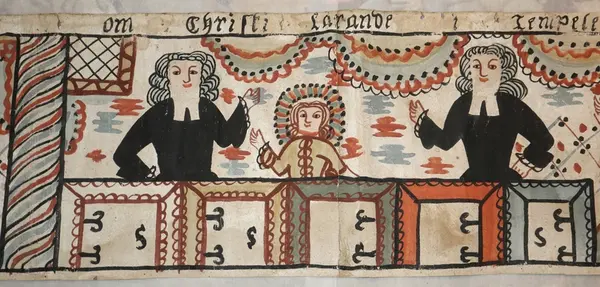 om Christi Larande i Tempele